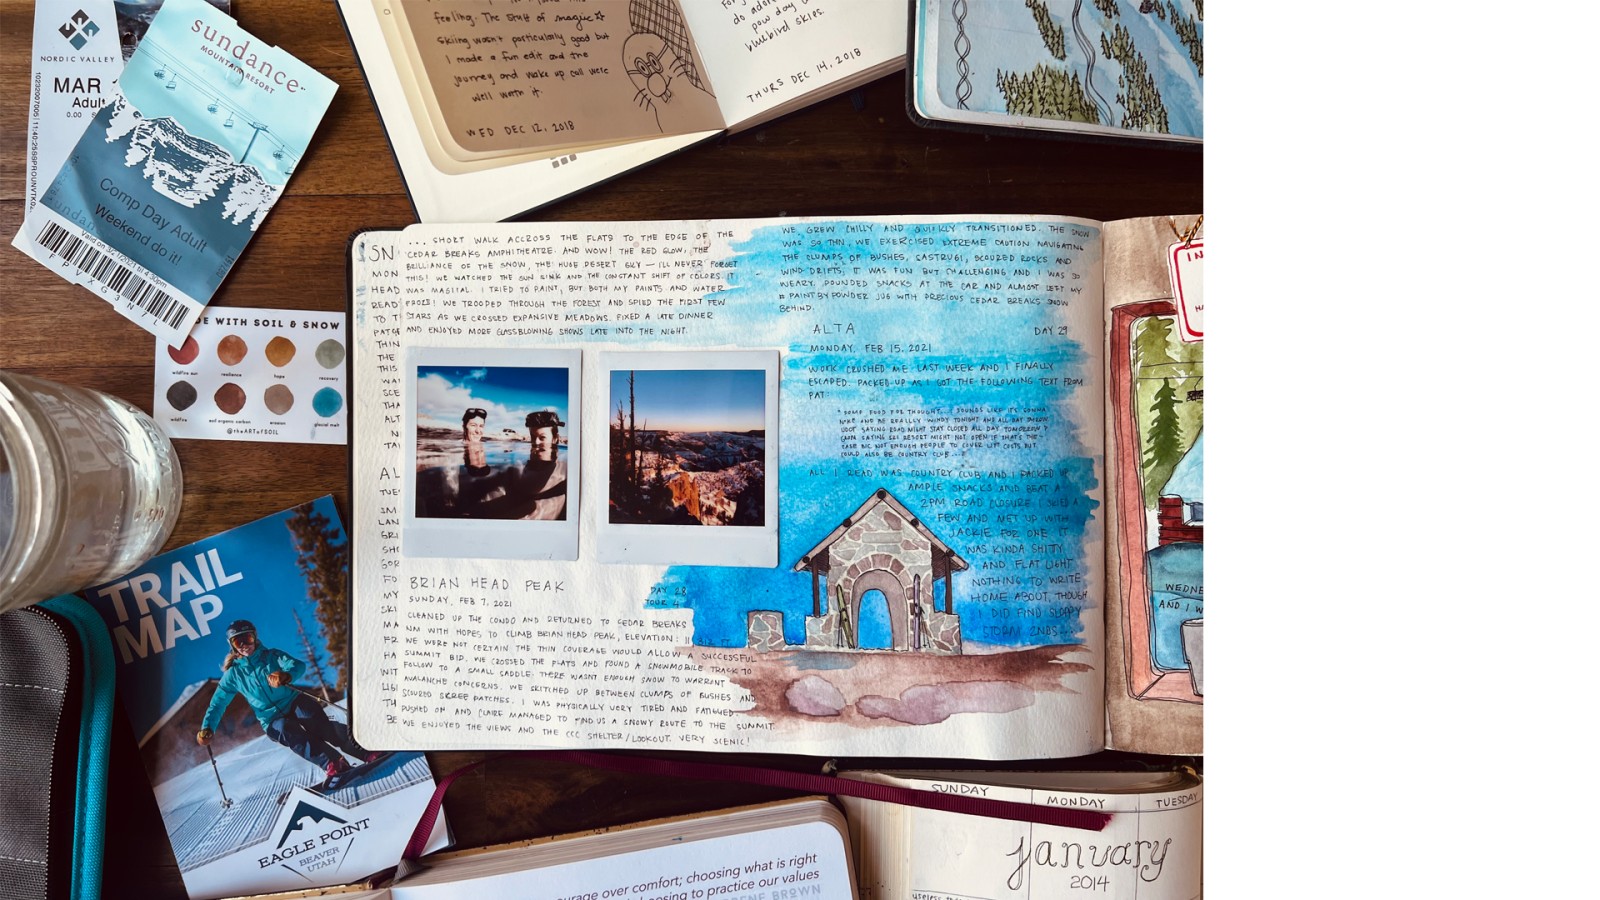 NORDIC VALLEY
MAR
Adul
0.00
sundance
MOUNTAIN RESORT
Comp Day Adult
Weekend do it!
FPVXG3N
feeling. The stuff of magic
Skiing wasn't particularly good but
I made a fun edit and the
journey and wake up call were
well worth it.
WED DEC 12, 2018
do adore
pow day
bluebird skies.
THURS DEC 14, 2018
DE WITH SOIL & SNOW
wildfire sun
resilience
hope
recovery
wildfire
soil organic carbon
erosion
glacial melt
@theARTofSOIL
TRAIL
MAP
EAGLE POINT
BEAVER
UTAH
SN
MON
HEAD
READ
TO T
THIN
THE
THIS
WAL
SCE
THA
ALT
AL
TUE
... SHORT WALK ACCROSS THE FLATS TO THE EDGE OF THE
CEDAR BREAKS AMPHITHEATRE. AND WOW! THE RED GLOW, THE
BRILLIANCE OF THE SNOW, THE HUGE DESERT SKY - I'LL NEVER FORGET
THIS! WE WATCHED THE SUN SINK AND THE CONSTANT SHIFT OF COLORS. IT
WAS MAGICAL. I TRIED TO PAINT, BUT BOTH MY PAINTS AND WATER
FROZE! WE TROOPED THROUGH THE FOREST AND SPIED THE FIRST FEW
STARS AS WE CROSSED EXPANSIVE MEADOWS. FIXED A LATE DINNER
AND ENJOYED MORE GLASSBLOWING SHOWS LATE INTO THE NIGHT.
BRIAN HEAD PEAK
DAY 28
SUNDAY, FEB 7, 2021
TOUR 4
CLEANED UP THE CONDO AND RETURNED TO CEDAR BREAKS
NM WITH HOPES TO CLIMB BRIAN HEAD PEAK, ELEVATION:
WE WERE NOT CERTAIN THE THIN COVERAGE WOULD ALLOW A SUCCESSFUL
SUMMIT BID. WE CROSSED THE FLATS AND FOUND A SNOWMOBILE TRACK TO
FOLLOW TO A SMALL SADDLE. THERE WASNT ENOUGH SNOW TO WARRENT
AVALANCHE CONCERNS. WE SKITCHED UP BETWEEN CLUMPS OF BUSHES AND
SCOURED SCREE PATCHES. I WAS PHYSICALLY VERY TIRED AND FATIGUED.
PUSHED ON AND CLAIRE MANAGED TO FIND US A SNOWY ROUTE TO THE SUMMIT.
WE ENJOYED THE VIEWS AND THE CCC SHELTER/LOOKOUT. VERY SCENIC!
WE GREW CHILLY AND QUICKLY TRANSITIONED. THE SNOW
WAS SO THIN, WE EXERCISED EXTREME CAUTION NAVIGATING
THE CLUMPS OF BUSHES, SASTRUGI, SCOURED ROCKS AND
WIND DRIFTS. IT WAS FUN BUT CHALLENGING AND I WAS SO
WEARY. POUNDED SNACKS AT THE CAR AND ALMOST LEFT MY
#PAINTBYPOWDER JUG WITH PRECIOUS CEDAR BREAKS SNOW
BEHIND.
ALTA
DAY 29
MONDAY, FEB 15, 2021
WORK CRUSHED ME LAST WEEK AND I FINALLY
ESCAPED. PACKED UP AS I GOT THE FOLLOWING TEXT FROM
PAT:
"SOME FOOD FOR THOUGHT... SOUNDS LIKE ITS GONNA
NUKE AND BE REALLY WINDY TONIGHT AND ALL DAY
UDOT SAYING ROAD MIGHT STAY CLOSED ALL DAY TOMORROW
SAYING SKI RESORT MIGHT NOT OPEN IF THAT'S THE
CASE B/C NOT ENOUGH PEOPLE TO COVER LIFT COSTS BUT
COULD ALSO BE COUNTRY CLUB..."
ALL I READ WAS COUNTRY CLUB AND I PACKED UP
AMPLE SNACKS AND BEAT A
2PM ROAD CLOSURE. I SKIED A
FEW AND MET UP WITH
JACKIE FOR ONE. IT
WAS KINDA SHITTY
AND FLAT LIGHT,
NOTHING TO WRITE
HOME ABOUT, THOUGH
I DID FIND SLOPPY
STORM 2NDS.
IN
WEDNE
AND I W
courage over comfort; choosing what is right
choosing to practice our values
BRENE BROWN
SUNDAY
MONDAY
TUESDAY
january
2014
useless